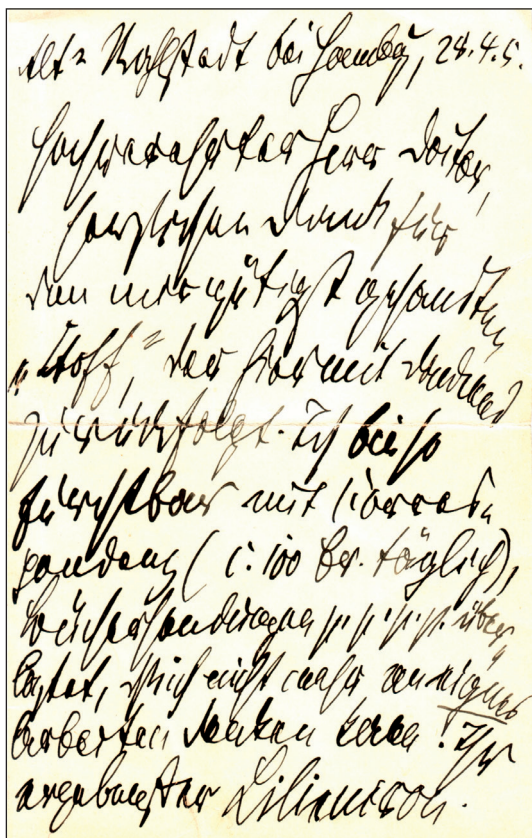 Alt-Rahlstedt bei Hamburg, 28.4.5.
Hochverehrter Herr Doktor,
herzlichen Dank für
den mir gütigst gesandten
„Stoff“, der hiermit dankend
zurückfolgt. Ich bin so
furchtbar mit Corres-
pondenz (c. 100 Br. täglich),
Büchersendungen p. p. p. p. über-
lastet, daß ich nicht mehr an eignes
Arbeiten denken kann! Ihr
ergebenster Liliencron.